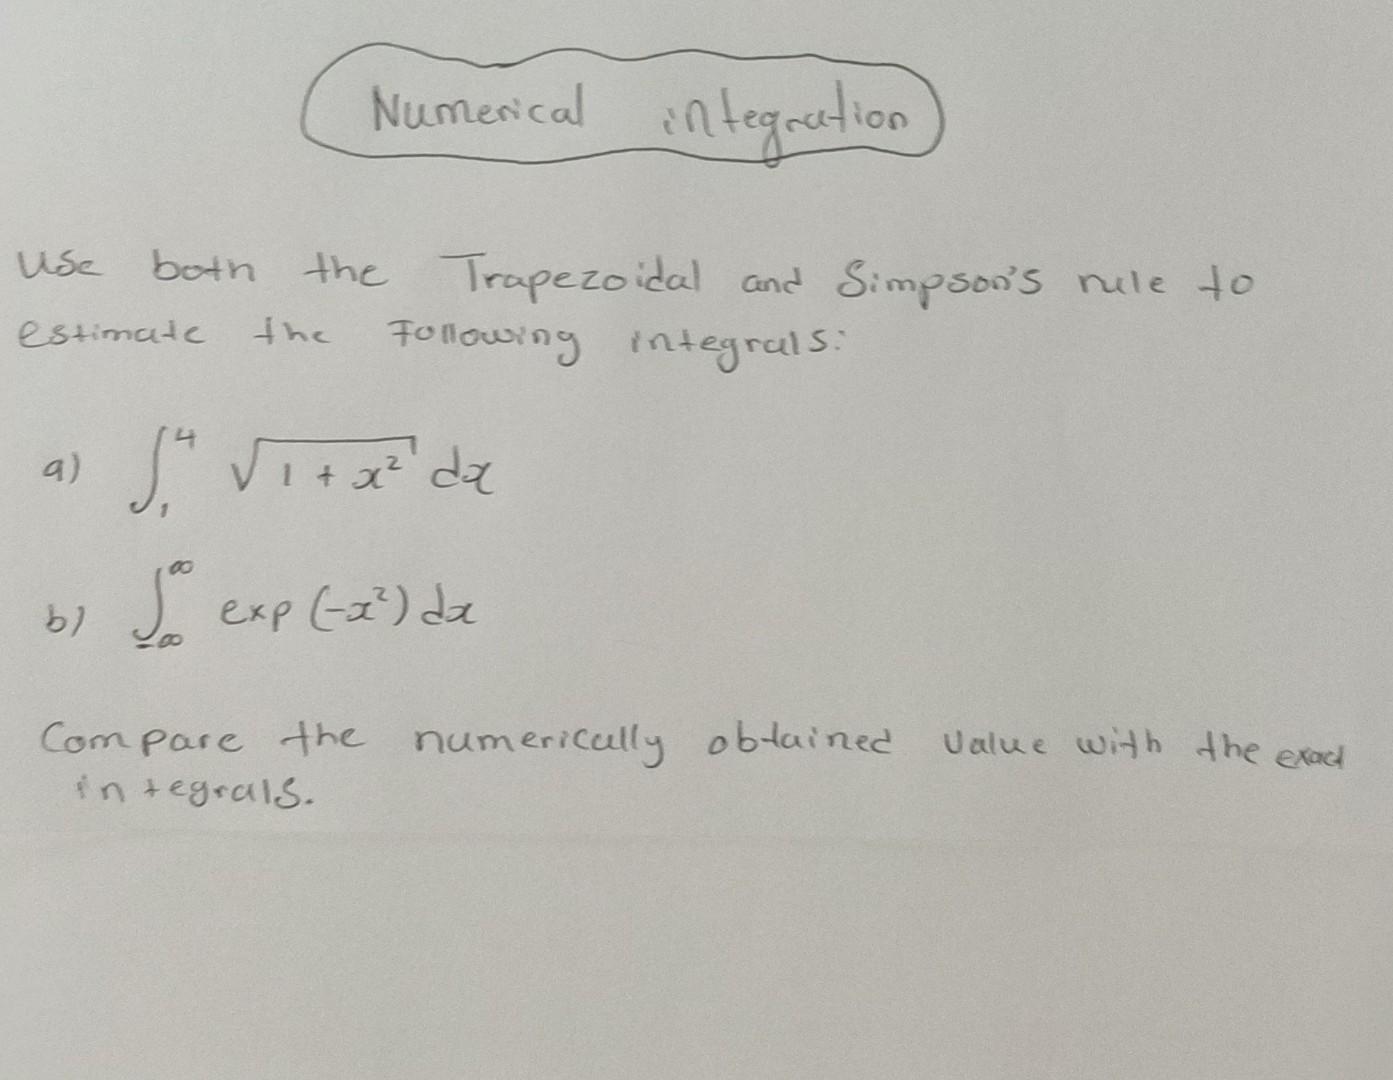 Numerical integration
Use both the Trapezoidal and Simpson's rule to
estimate the following integrals:
a) ∫₁⁴ √(1 + x²) dx
b) ∫₋∞^∞ exp (-x²) dx
Compare the numerically obtained value with the exact
integrals.